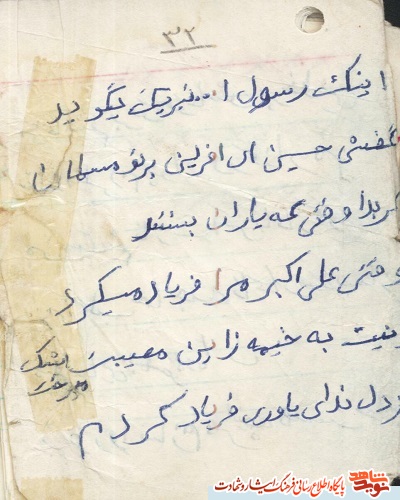 ۳۲
اینک رسول ا... تبریک میگوید
گفتی حسین ای افرین بر تو مسلمان
کربلا وقتی همه یاران بستند
وقتی علی اکبر مرا فریاد میکرد
زینب به خیمه زاین مصیبت اشک میریخت
از دل ندای یاوری فریاد کردم
نوید شاهد
پایگاه اطلاع رسانی فرهنگ ایثار و شهادت